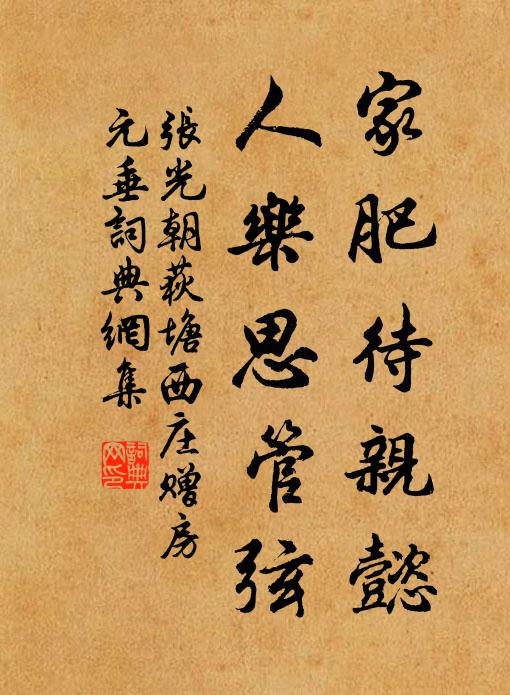 家肥待親懿
人樂思管弦
張光朝荻塘西庄赠房
元垂詞典網集
詞典
网印